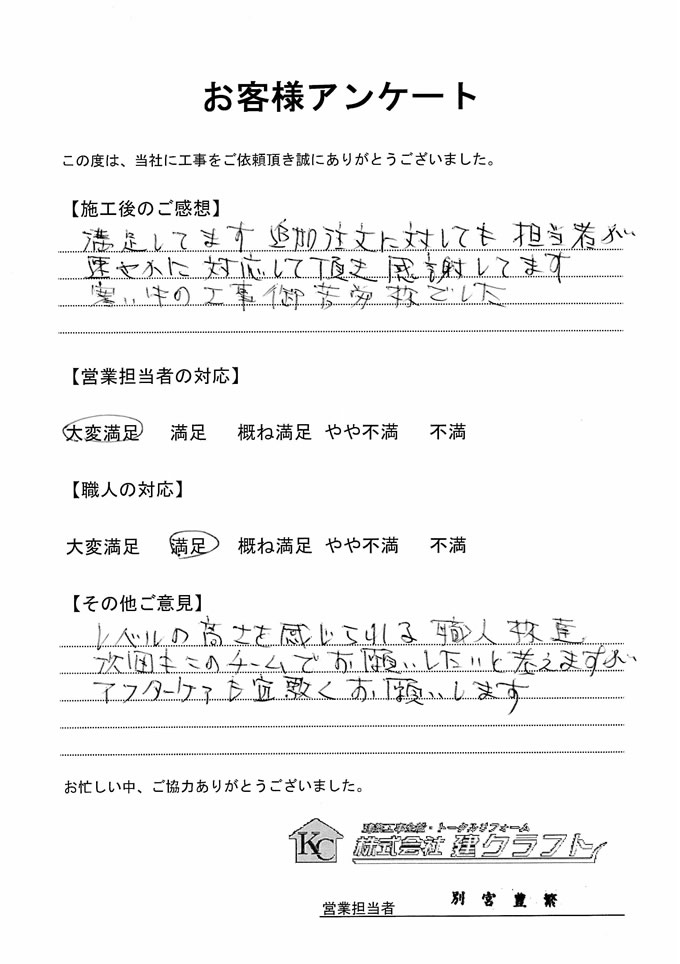 お客様アンケート
この度は、当社に工事をご依頼頂き誠にありがとうございました。
【施工後のご感想】
満足してます 追加注文に対しても 担当者が
速やかに 対応して頂き 感謝してます
寒い中の工事御苦労様でした
【営業担当者の対応】
大変満足 満足 概ね満足 やや不満 不満
【職人の対応】
大変満足 満足 概ね満足 やや不満 不満
【その他ご意見】
レベルの高さを感じられる 職人様達
次回もこのチームでお願いしたいと考えますが
アフターケアも宜敷くお願いします
お忙しい中、ご協力ありがとうございました。
建築工事全般・トータルリフォーム
KC 株式会社 建クラフト
営業担当者 別宮豊繁